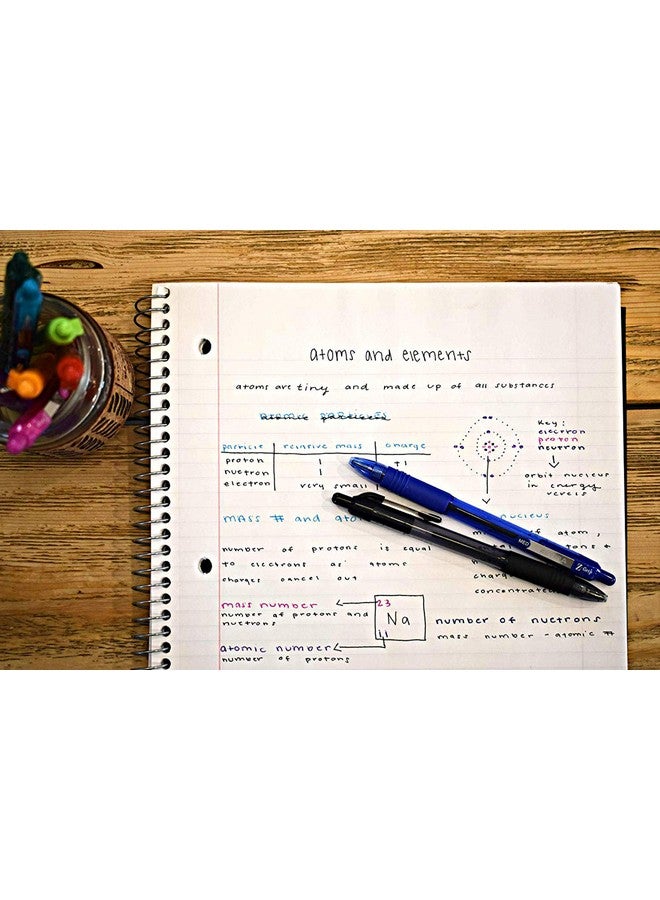 atoms and elements
atoms are tiny and made up of all substances
particle relative mass charge
proton 1 +1
nuetron 1
electron very small
Key:
electron
proton
neutron
orbit nucleus
in energy
levels
mass # and ato
nucleus
number of protons is equal
to electrons as atoms
charges cancel out
f atom,
concentrate
mass number
number of protons and
nuetrons
23
Na
11
atomic number
number of protons
number of nuetrons
mass number - atomic #
MED
Z-Grip